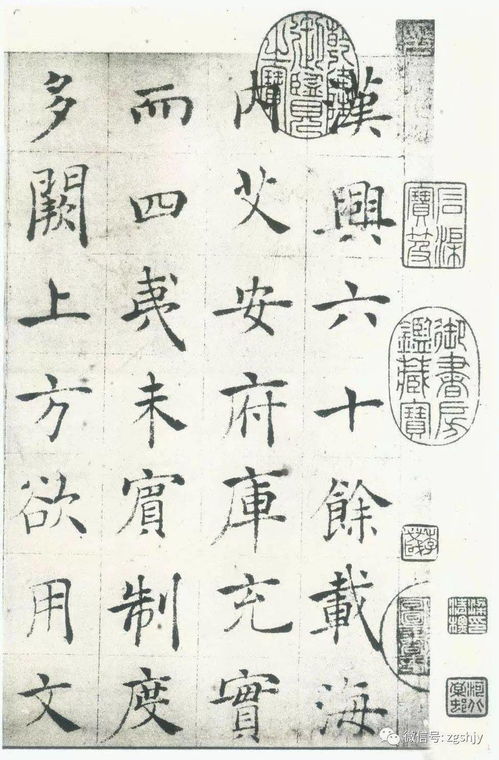 漢興六十餘載海
内艾安府庫充實
而四夷未賓制度
多闕上方欲用文
乾隆御覽之寶
石渠寶笈
御書房鑑藏寶
微信号: zgshjy